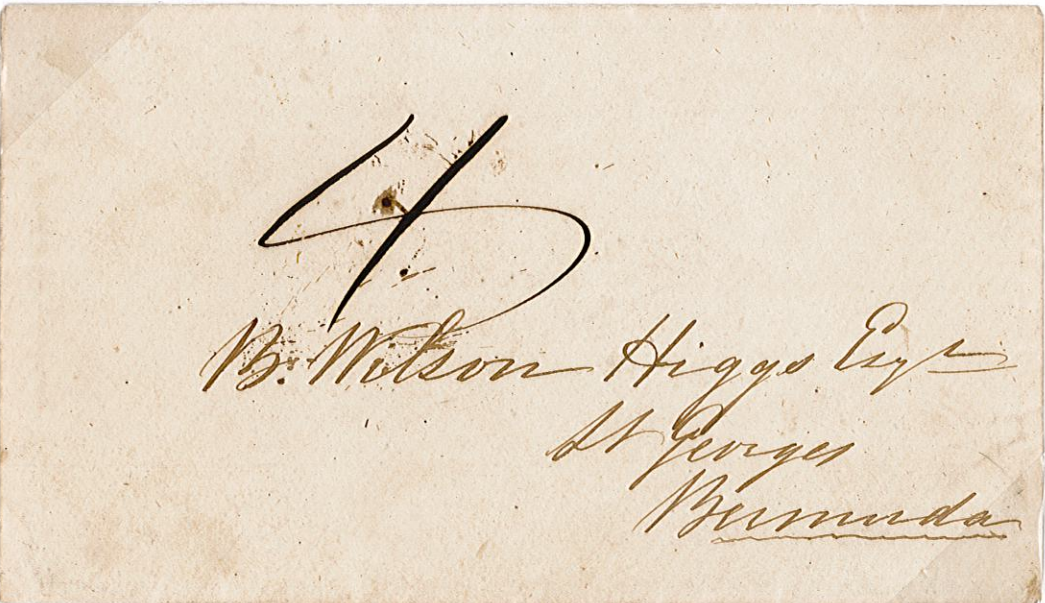 4
B. Wilson Higgs Esqr
St Georges
Bermuda